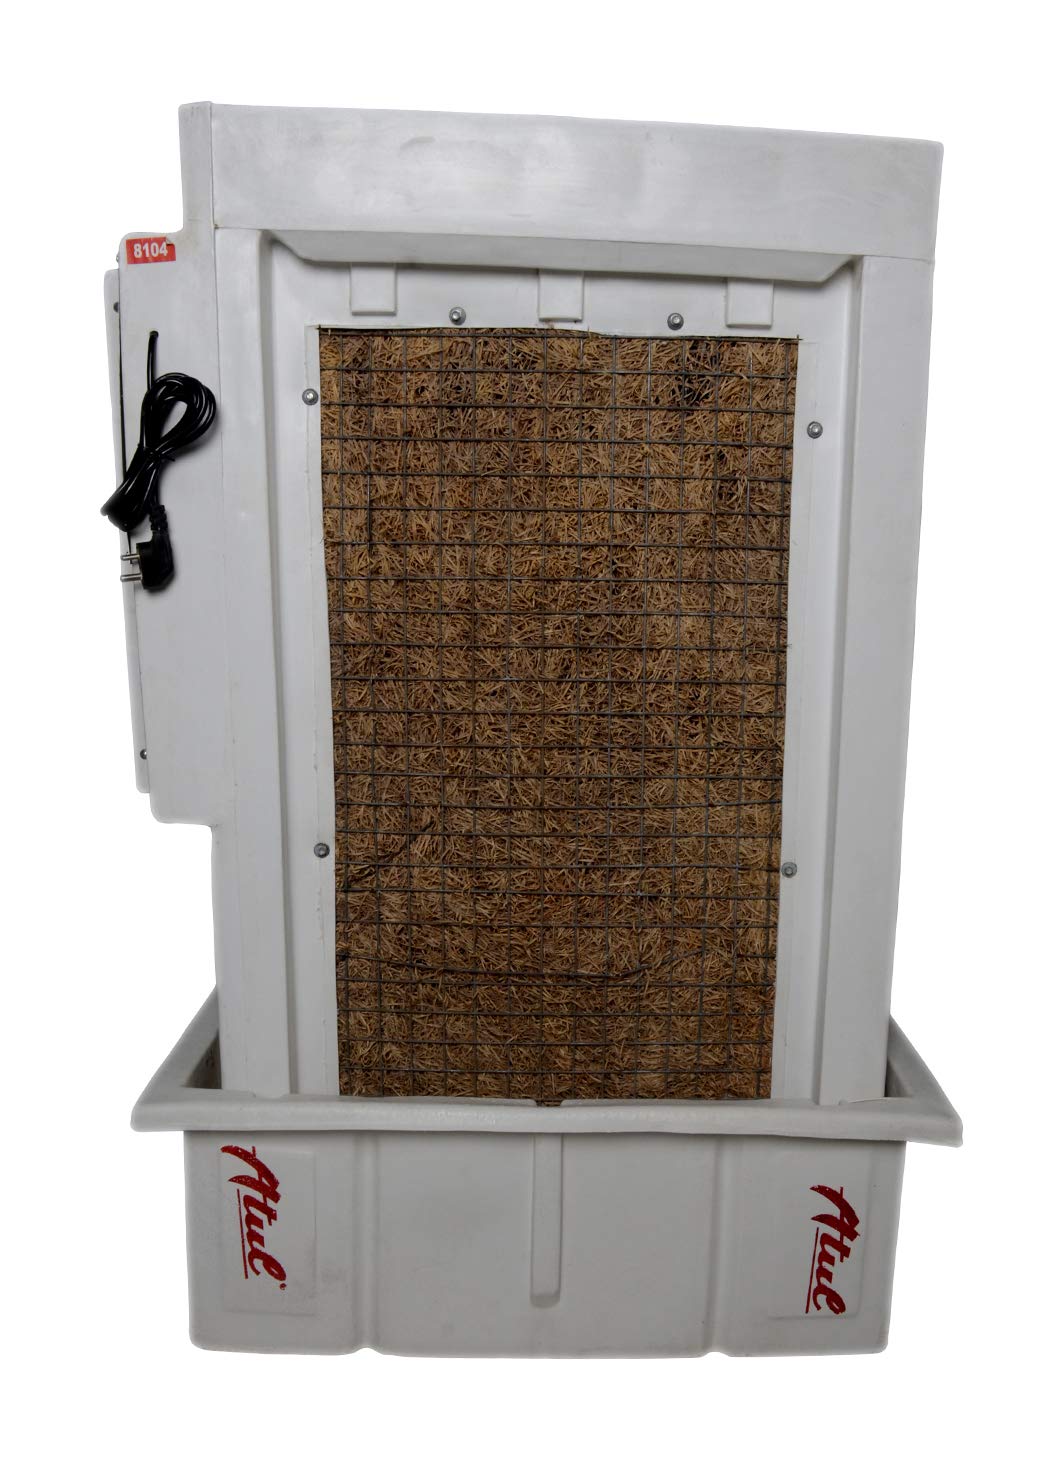 8104
Atul
Atul